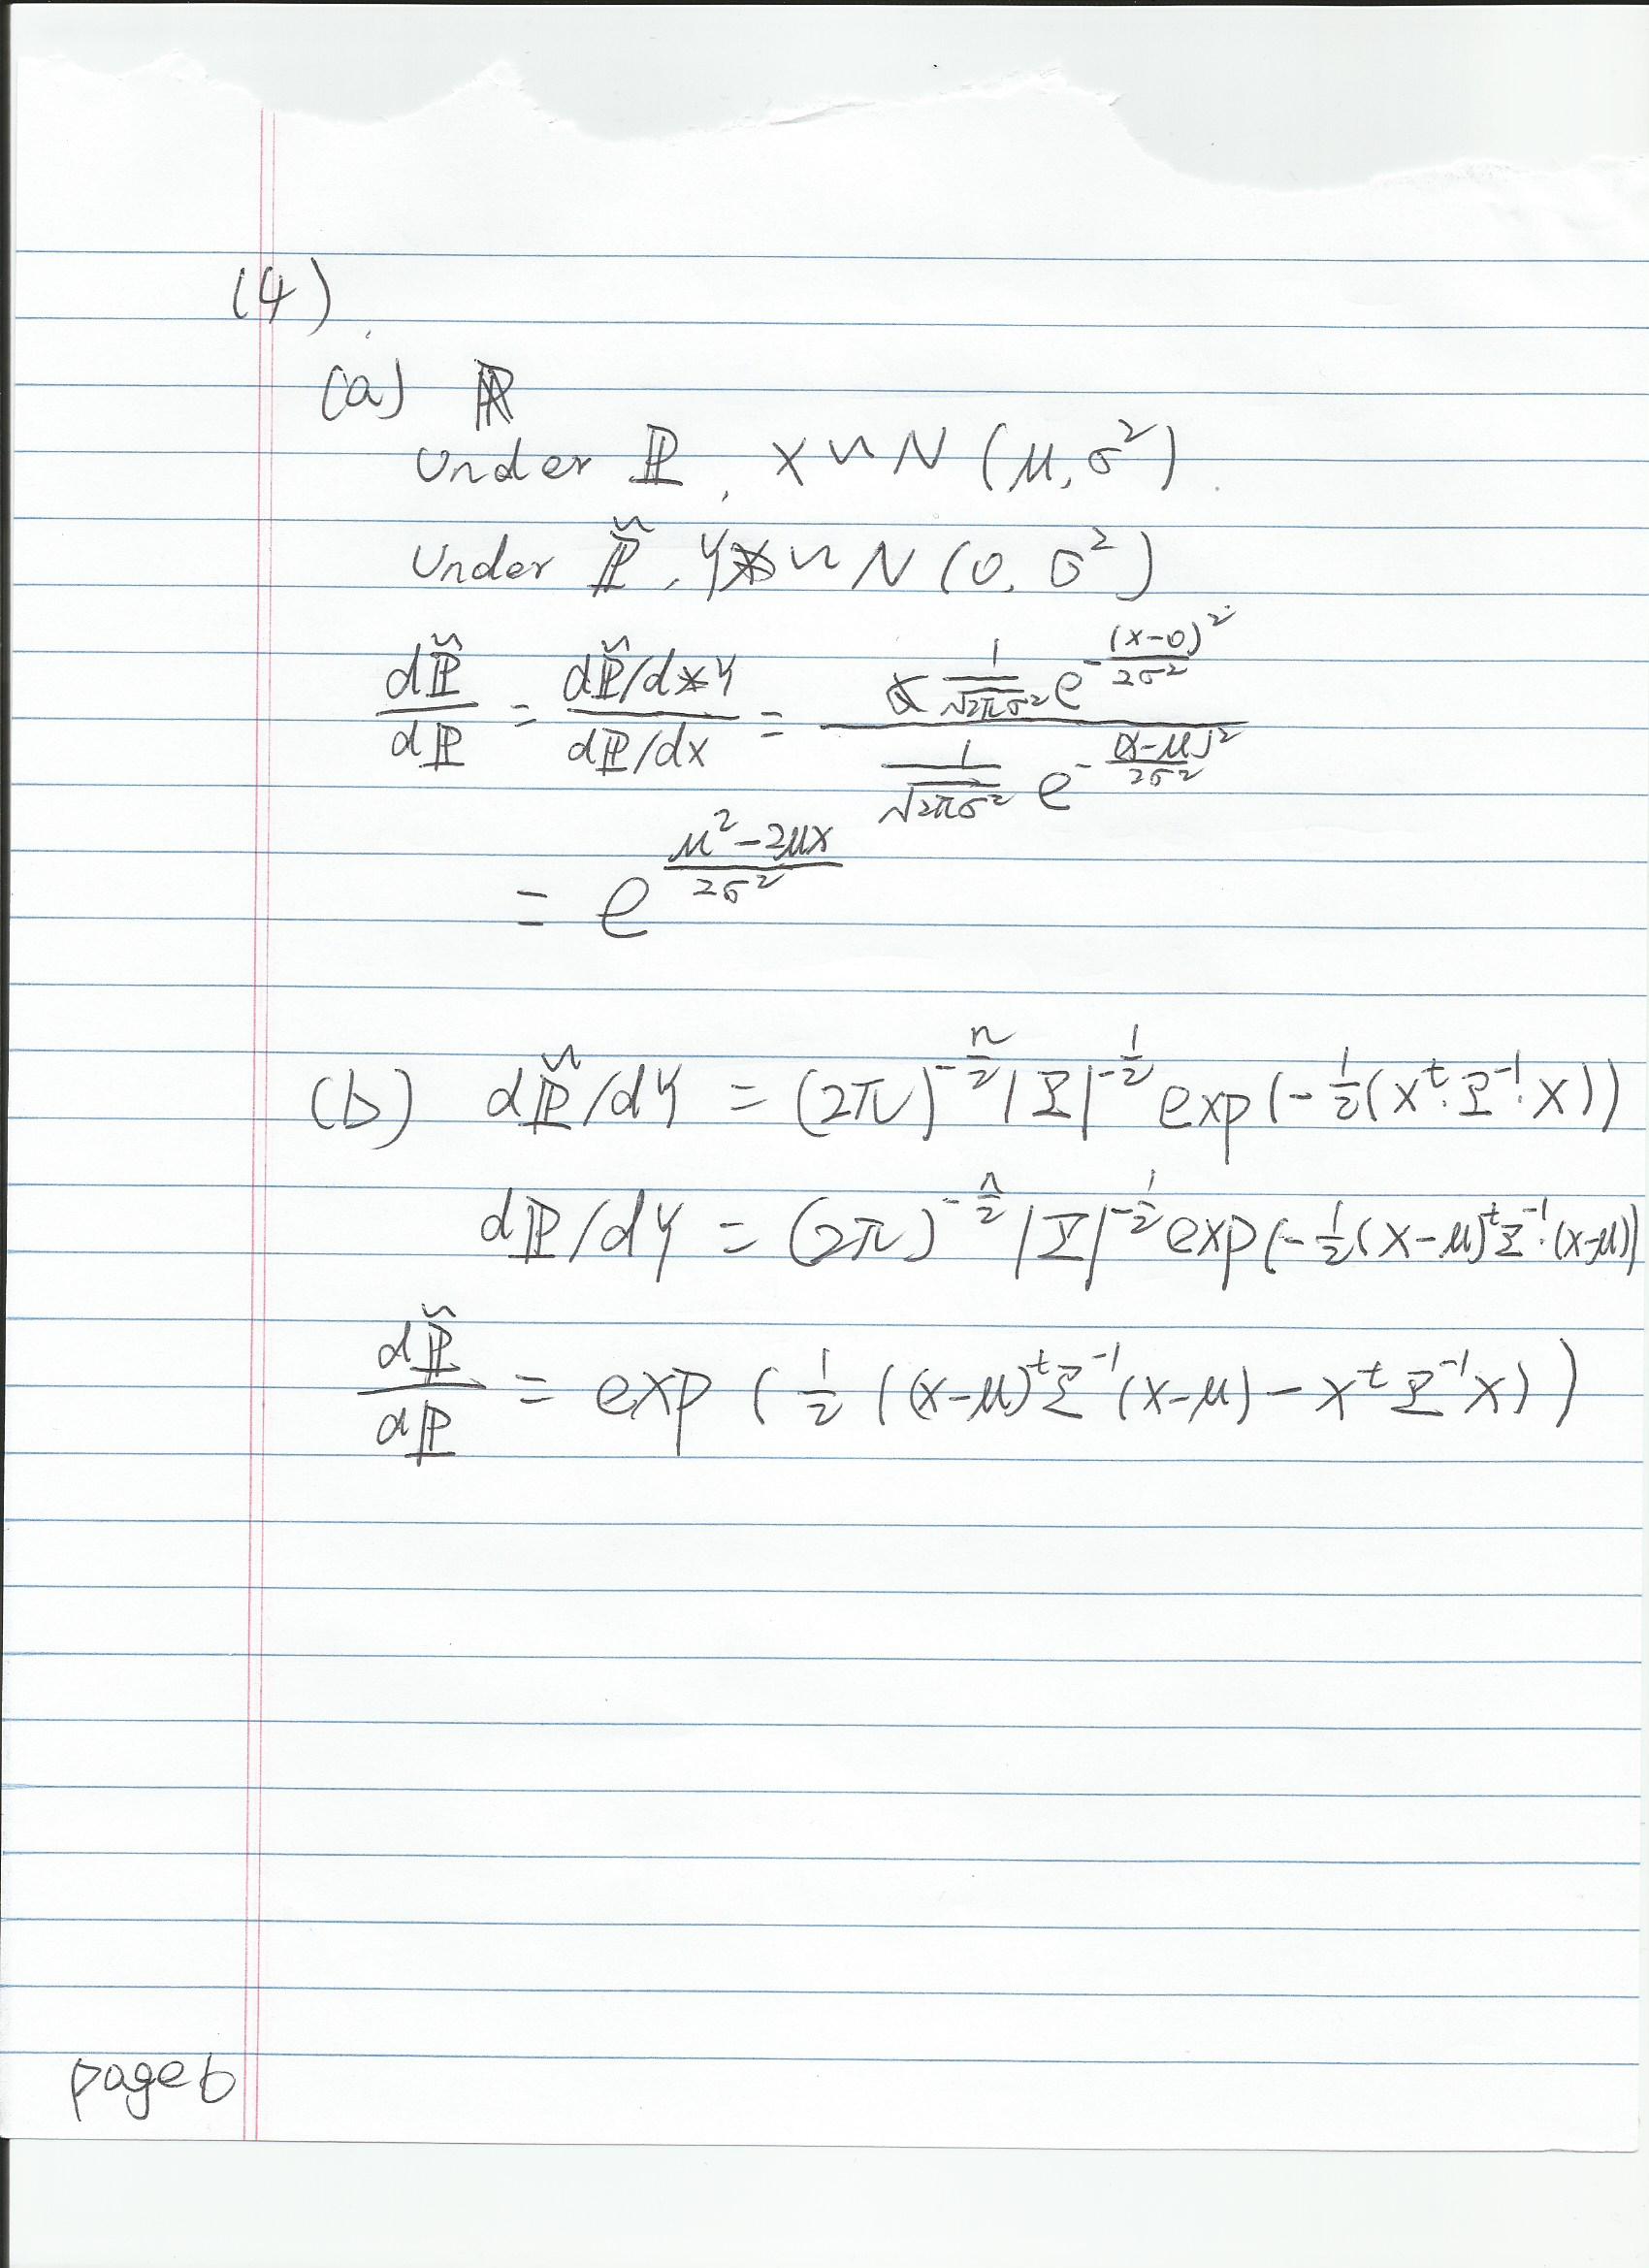 (4)
(a)
Under ℙ, X ~ N(μ, σ²).
Under ℙ̃, Y ~ N(0, σ²)
dℙ̃/dℙ = (dℙ̃/dY)/(dℙ/dx) = (1/√(2πσ²) e^(-(x-0)²/(2σ²)))/(1/√(2πσ²) e^(-(x-μ)²/(2σ²)))
= e^((μ²-2μx)/(2σ²))
(b) dℙ̃/dY = (2π)^(-n/2) |Σ|^(-1/2) exp(-1/2(x^t·Σ^(-1)·x))
dℙ/dY = (2π)^(-n/2) |Σ|^(-1/2) exp(-1/2(x-μ)^t Σ^(-1)·(x-μ))
dℙ̃/dℙ = exp(1/2((x-μ)^t Σ^(-1)(x-μ) - x^t Σ^(-1) x))
page6